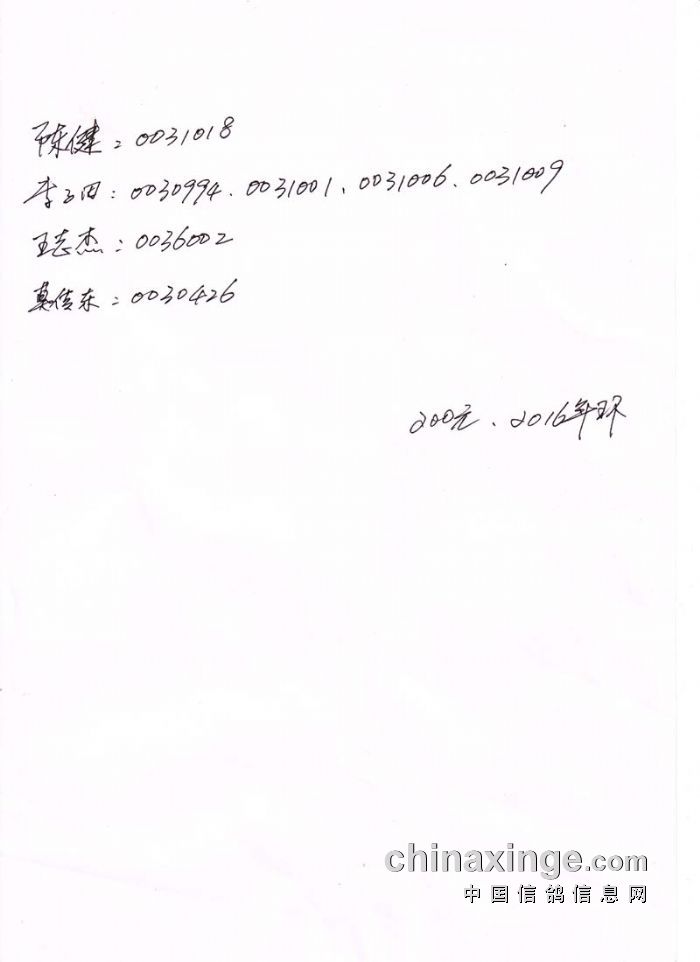 陈健：0031018
李子田：0030994、0031001、0031006、0031009
王志杰：0036002
莫传东：0030426
200元、2016年环
chinaxinge.com
中国信鸽信息网